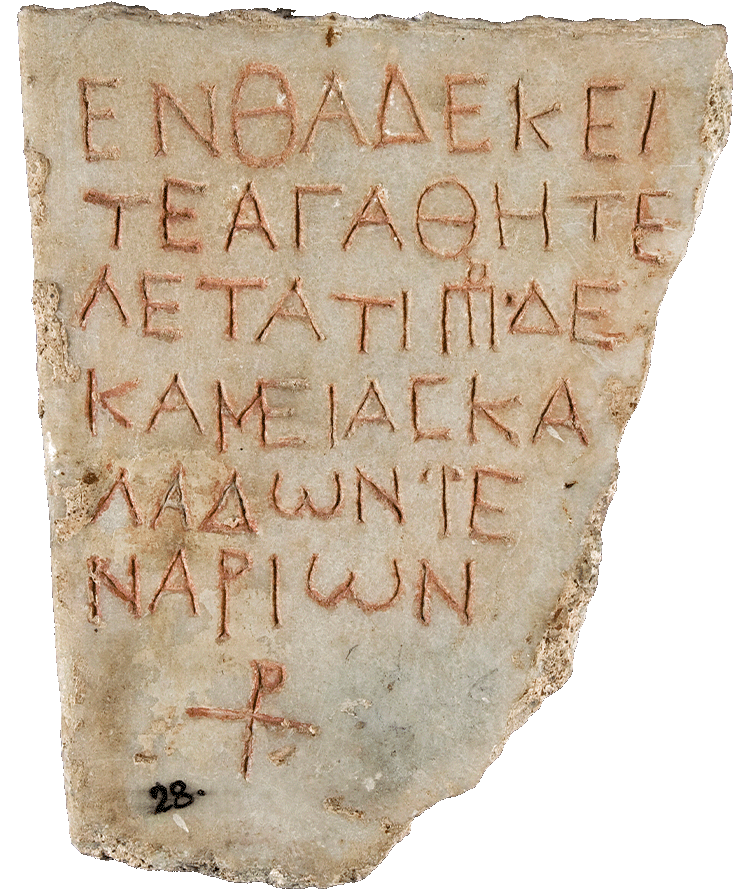 ΕΝΘΑΔΕΚΕΙ
ΤΕΑΓΑΘΗΤΕ
ΛΕΤΑΤΙΠΡ·ΔΕ
ΚΑΜΕΙΑϹΚΑ
ΛΑΔωΝΪΕ
ΝΑΡΙωΝ
⳨
28.